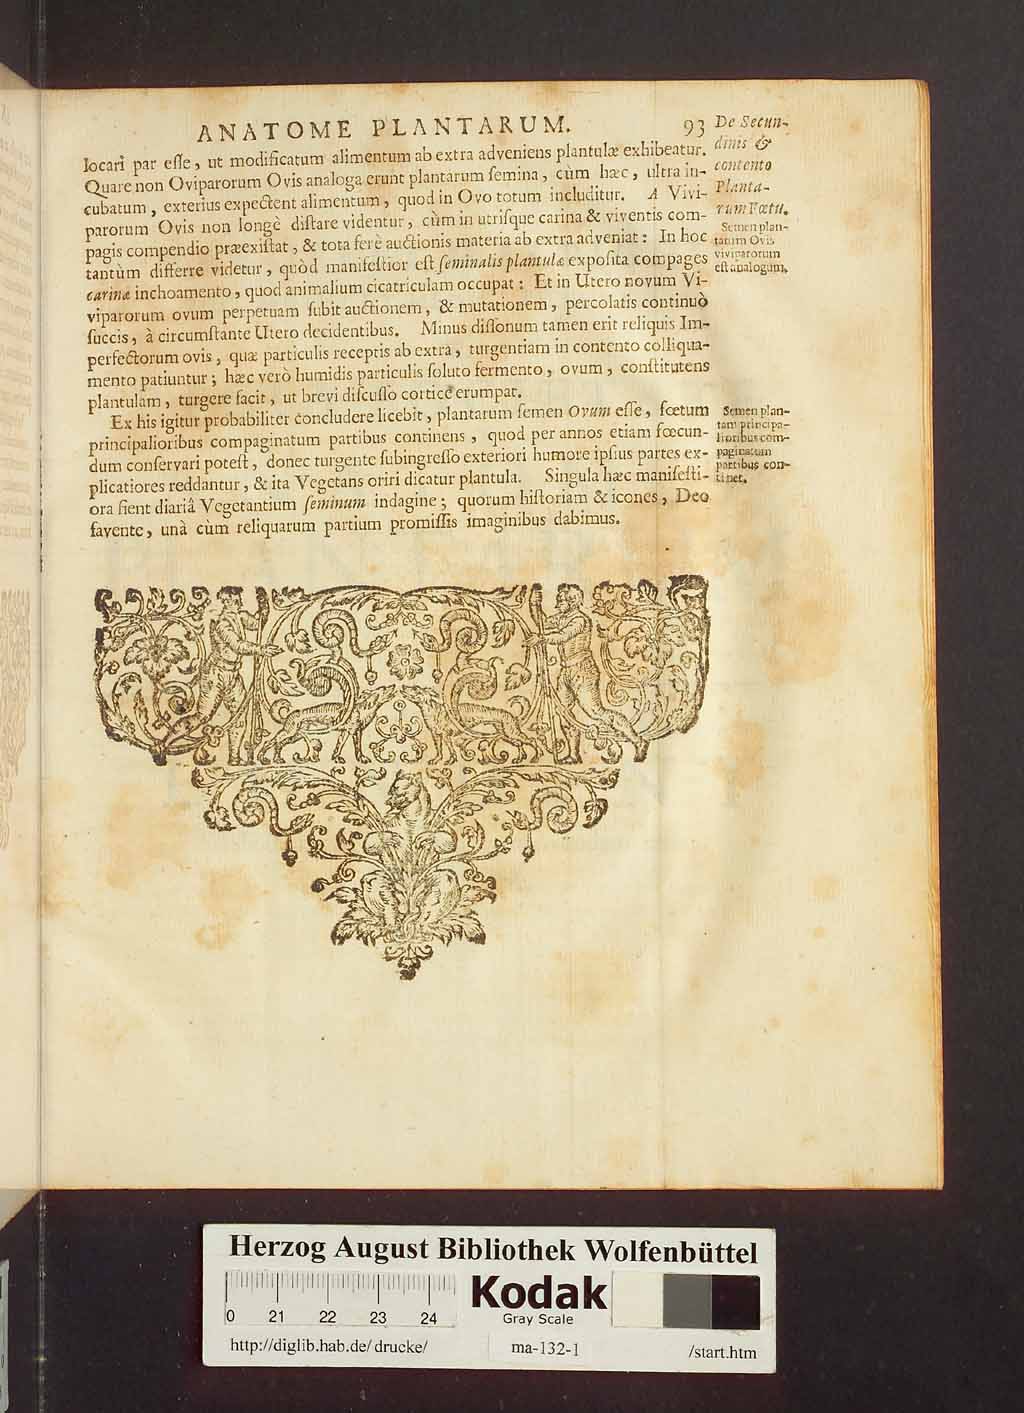 ANATOME PLANTARUM. 93
De Secun-
dinis &
contento
Planta-
rum Fœtu.
locari par eſſe, ut modificatum alimentum ab extra adveniens plantulæ exhibeatur.
Quare non Oviparorum Ovis analoga erunt plantarum ſemina, cùm hæc, ultra in-
cubatum, exterius expectent alimentum, quod in Ovo totum includitur. A Vivi-
parorum Ovis non longè diſtare videntur, cùm in utriſque carina & viventis com-
pagis compendio præexiſtat, & tota ferè auctionis materia ab extra adveniat: In hoc
tantùm differre videtur, quòd manifeſtior eſt ſeminalis plantulæ expoſita compages
carinæ inchoamento, quod animalium cicatriculam occupat: Et in Utero novum Vi-
viparorum ovum perpetuam ſubit auctionem, & mutationem, percolatis continuò
ſuccis, à circumſtante Utero decidentibus. Minus diſſonum tamen erit reliquis Im-
perfectorum ovis, quæ particulis receptis ab extra, turgentiam in contento colliqua-
mento patiuntur; hæc verò humidis particulis ſoluto fermento, ovum, conſtitutens
plantulam, turgere facit, ut brevi diſcuſſo cortice erumpat.
Semen plan-
tarum Ovis
viviparorum
eſt analogum,
Ex his igitur probabiliter concludere licebit, plantarum ſemen Ovum eſſe, fœtum
principalioribus compaginatum partibus continens, quod per annos etiam fœcun-
dum conſervari poteſt, donec turgente ſubingreſſo exteriori humore ipſius partes ex-
plicatiores reddantur, & ita Vegetans oriri dicatur plantula. Singula hæc manifeſti-
ora fient diariâ Vegetantium ſeminum indagine; quorum hiſtoriam & icones, Deo
favente, unà cùm reliquarum partium promiſſis imaginibus dabimus.
Semen plan-
tam principa-
lioribus com-
paginatum
partibus con-
tinet.
Herzog August Bibliothek Wolfenbüttel
0 21 22 23 24
Kodak
Gray Scale
http://diglib.hab.de/drucke/ ma-132-1 /start.htm